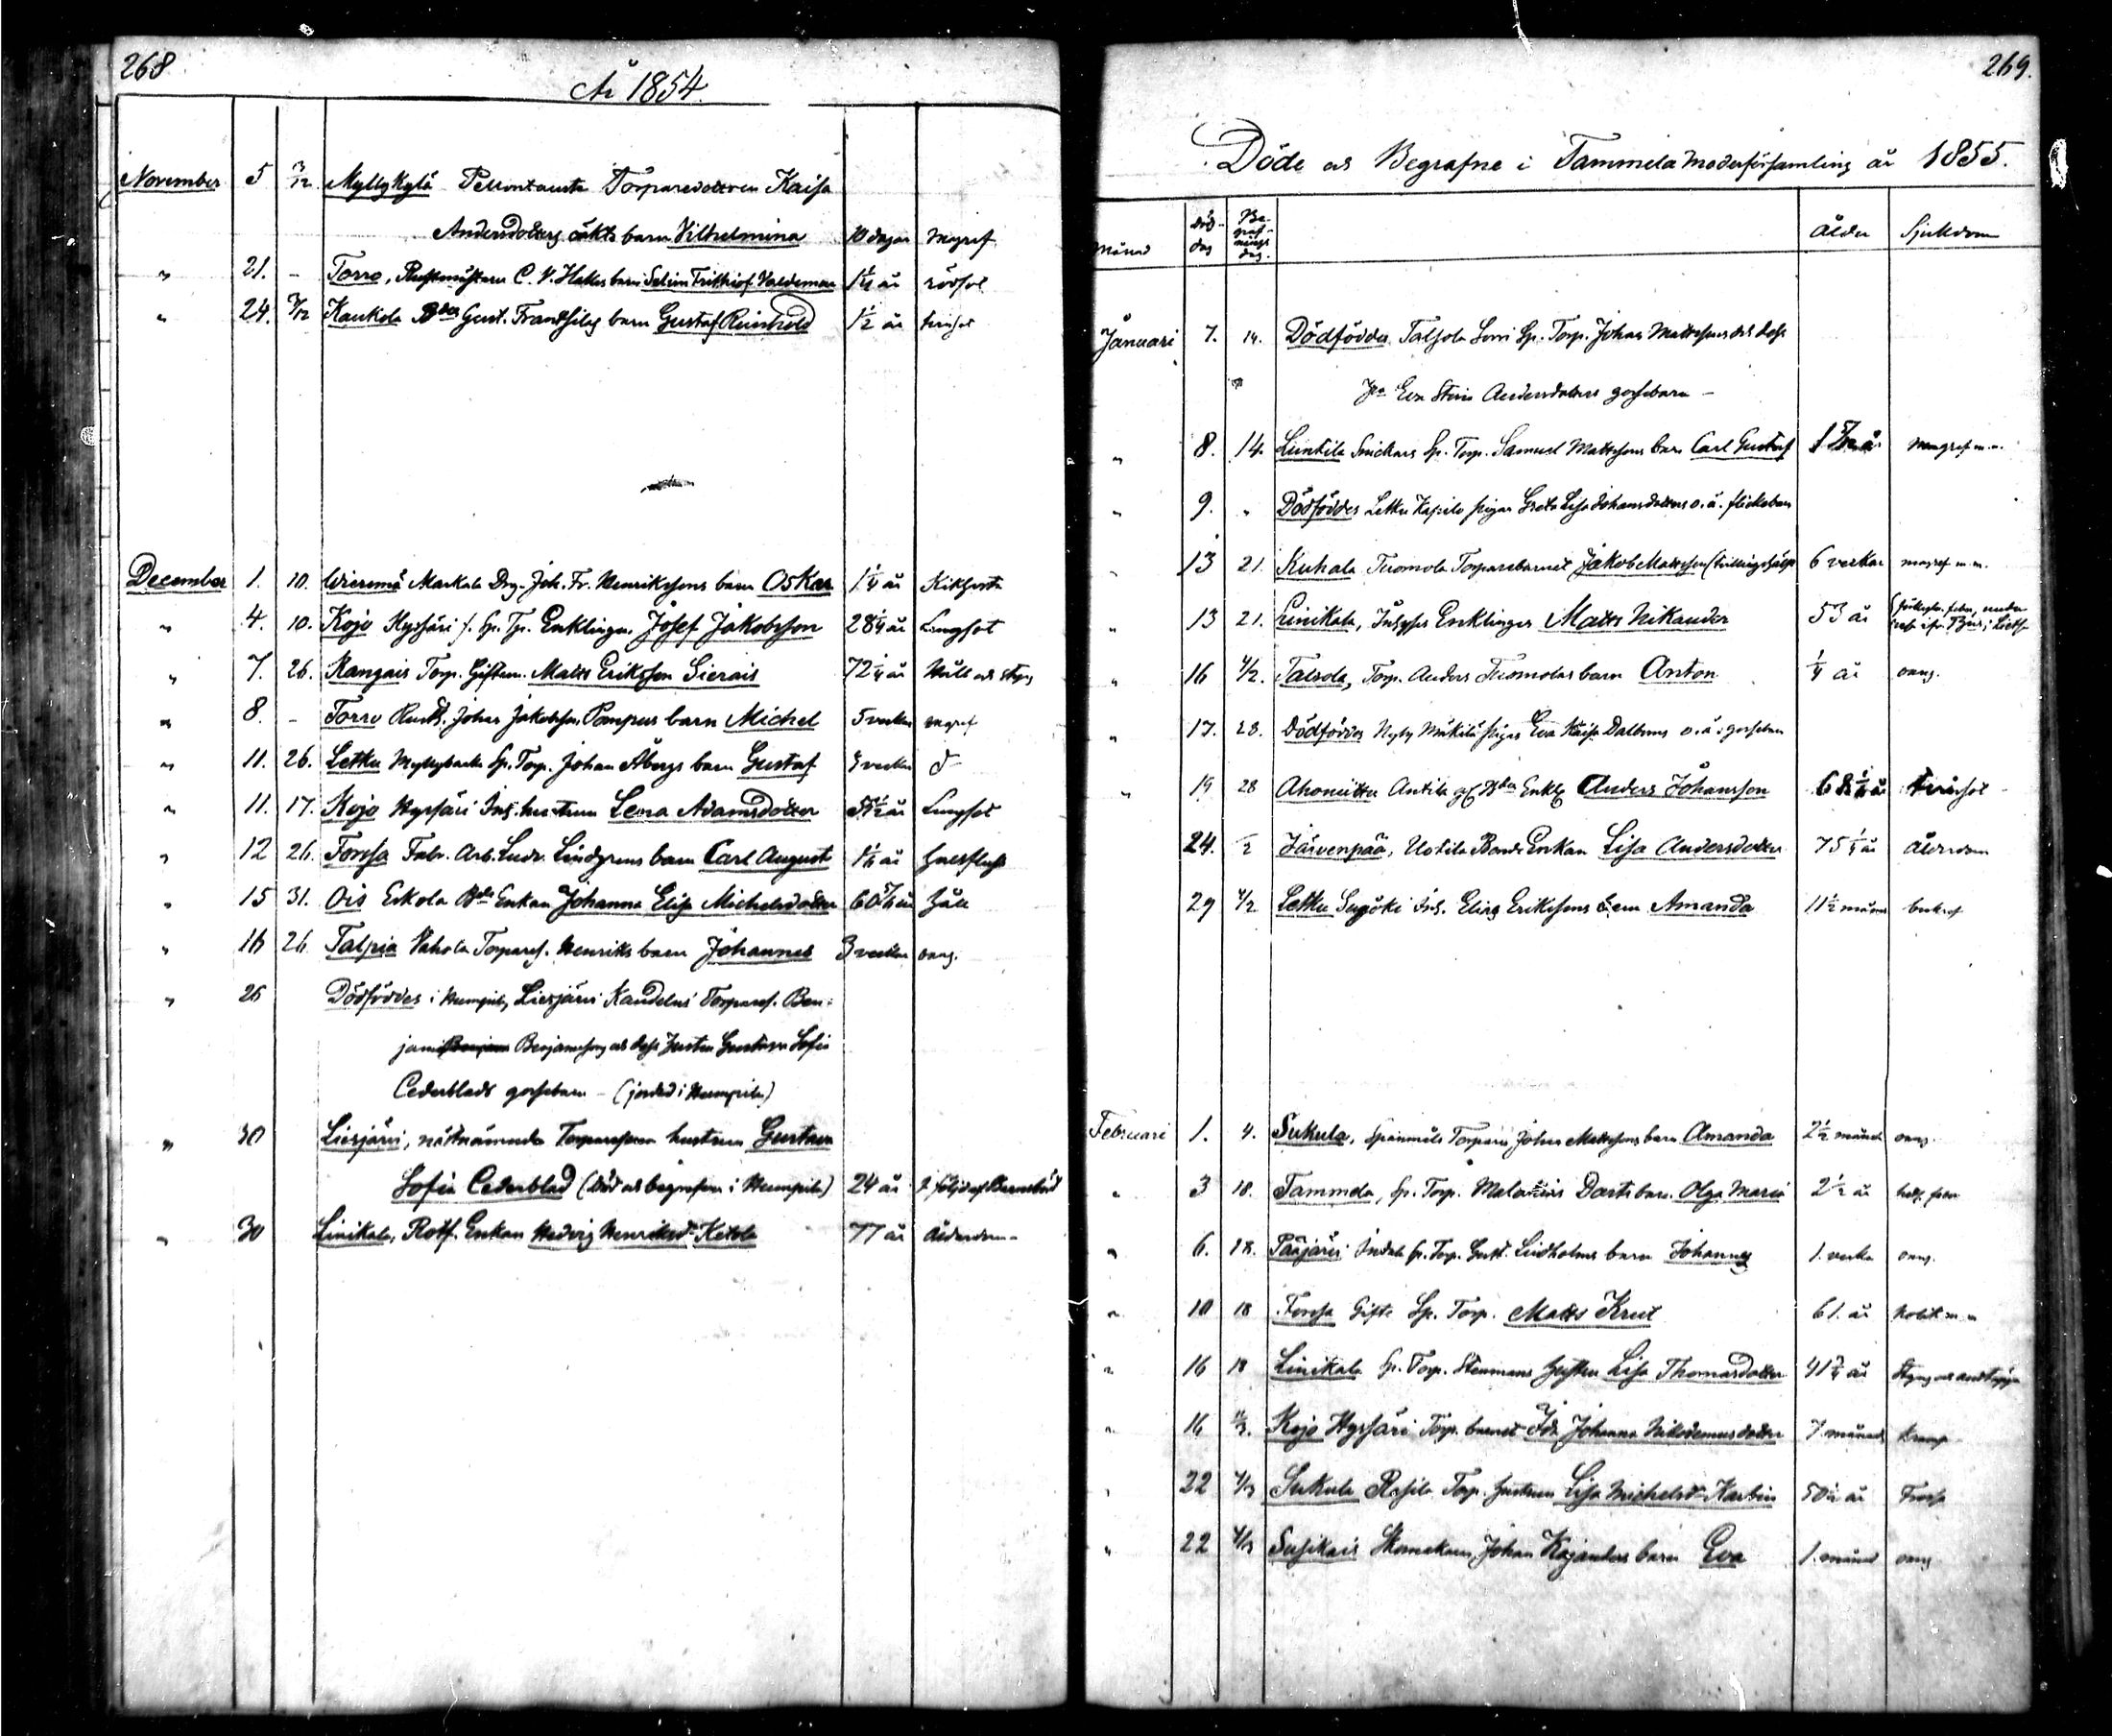 268
År 1854.
November 5 3/12 Myllykylä Torparedottren Kaisa
Andersdotters oäkta barn Vilhelmina 10 dagar magref
" 21. - Torro, Rustmästare C. V. barn Selim Frithiof Valdemar 1 1/4 år rödsot
" 24. 3/12 Kaukola Bdes Gust. Frantsilas barn Gustaf Reinhold 1 1/2 år
December 1. 10. Wieremä Markula Drg. Joh. Fr. Henrikssons barn Oskar 1 1/4 år Kikhosta
" 4. 10. Kojo Hyrsäri f. Sp. Tp. Enklingen Josef Jakobsson 28 1/4 år Lungsot
" 7. 26. Kangais Torp. Giftem. Matts Eriksson Sierais 72 1/4 år Håll och styng
" 8. - Torro Rusth. Johan Jakobsson Pompus barn Michel 5 veckor magref
" 11. 26. Letku Myllybacka Sp. Torp. Johan Åbergs barn Gustaf 4 veckor d:o
" 11. 17. Kojo Hyrsäri Inh. hustrun Lena Adamsdotter år Lungsot
" 12 26. Forssa Fabr. Arb. Ludv. Lindgrens barn Carl August 1 1/6 år Halsfluss
" 15 31. Ois Eskola Bde Enkan Johanna Elisa Michelsdotter 60 5/6 år Håll
" 16 26. Talpia Vahola Torparef. Henriks barn Johannes 3 veckor oang.
" 26 Dödföddes i Humpila, Liesjärvi Kandelus Torparef. Ben-
jamin Benjamsson och dess Hustru Gustava Sofia
Cederblads gossebarn - (jordad i Humpila)
" 30 Liesjärvi, nästnämnde Torparesons hustrun Gustava
Sofia Cederblad (död och begrafven i Humpila) 24 år I följd af Barnsbörd
" 30 Linikala, Rotf. Enkan Hedvig Henriksd:r Ketola 77 år Ålderdom
269.
Döde och Begrafne i Tammela Moderförsamling år 1855.
Månad Död-dag Be-graf-nings dag. Ålder Sjukdom
Januari 7. 14. Dödföddes Talsola Sorri Sp. Torp. Johan Mattssons och dess
H:u Eva Stina Andersdotters gossebarn -
" 8. 14. Liinkila Snickars Sp. Torp. Samuel Mattssons barn Carl Gustaf 1 år magref m.m.
" 9. " Dödföddes Letku Kapila pigan Greta Lisa Johansdotters o.ä. flickebarn
" 13 21. Kuhala Tuomola Torparebarnet Jakob Mattsson (tvillingshälft 6 veckor magref m.m.
" 13 21. Linikala, Enklingen Matts Nikander 53 år
" 16 4/2. Talsola, Torp. Anders Tuomolas barn Anton 1/4 år oang.
" 17. 28. Dödföddes Nyby Mäkilä pigan Eva Kaisa Dalboms o.ä. gossebarn
" 19 28 Ahonitty Antila Bdes Enkl. Anders Johansson 68 år
24. Järvenpää, Uotila Bonde Enkan Lisa Andersdotter 75 1/4 år Ålderdom
29 4/2 Letku Inh. Elias Erikssons barn Amanda 11 1/2 månad
Februari 1. 4. Sukula, Torparen Johan Mattssons barn Amanda 2 1/2 månad oang.
" 3 18. Tammela, Sp. Torp. barn Olga Maria 2 1/2 år
" 6. 18. Pääjärvi Sp. Torp. Gust. Lindholms barn Johannes 1. vecka oang.
" 10 18 Forssa Gifte Sp. Torp. Matts Krut 61. år Kolik m.m
" 16 18 Linikala Sp. Torp. Stenmans Hustru Lisa Thomasdotter 41 3/4 år Styng och andtäppa
" 16 Kojo Hyrsäri Torp. barnet Ida Johanna Nikodemusdotter 7 månad Kramp
" 22 4/3 Sukula Rasila Torp. hustrun Lisa Michelsd:r Karbin 50 1/2 år Frossa
" 22 4/3 Susikais Skomakaren Johan Kajanders barn Eva 1. månad oang